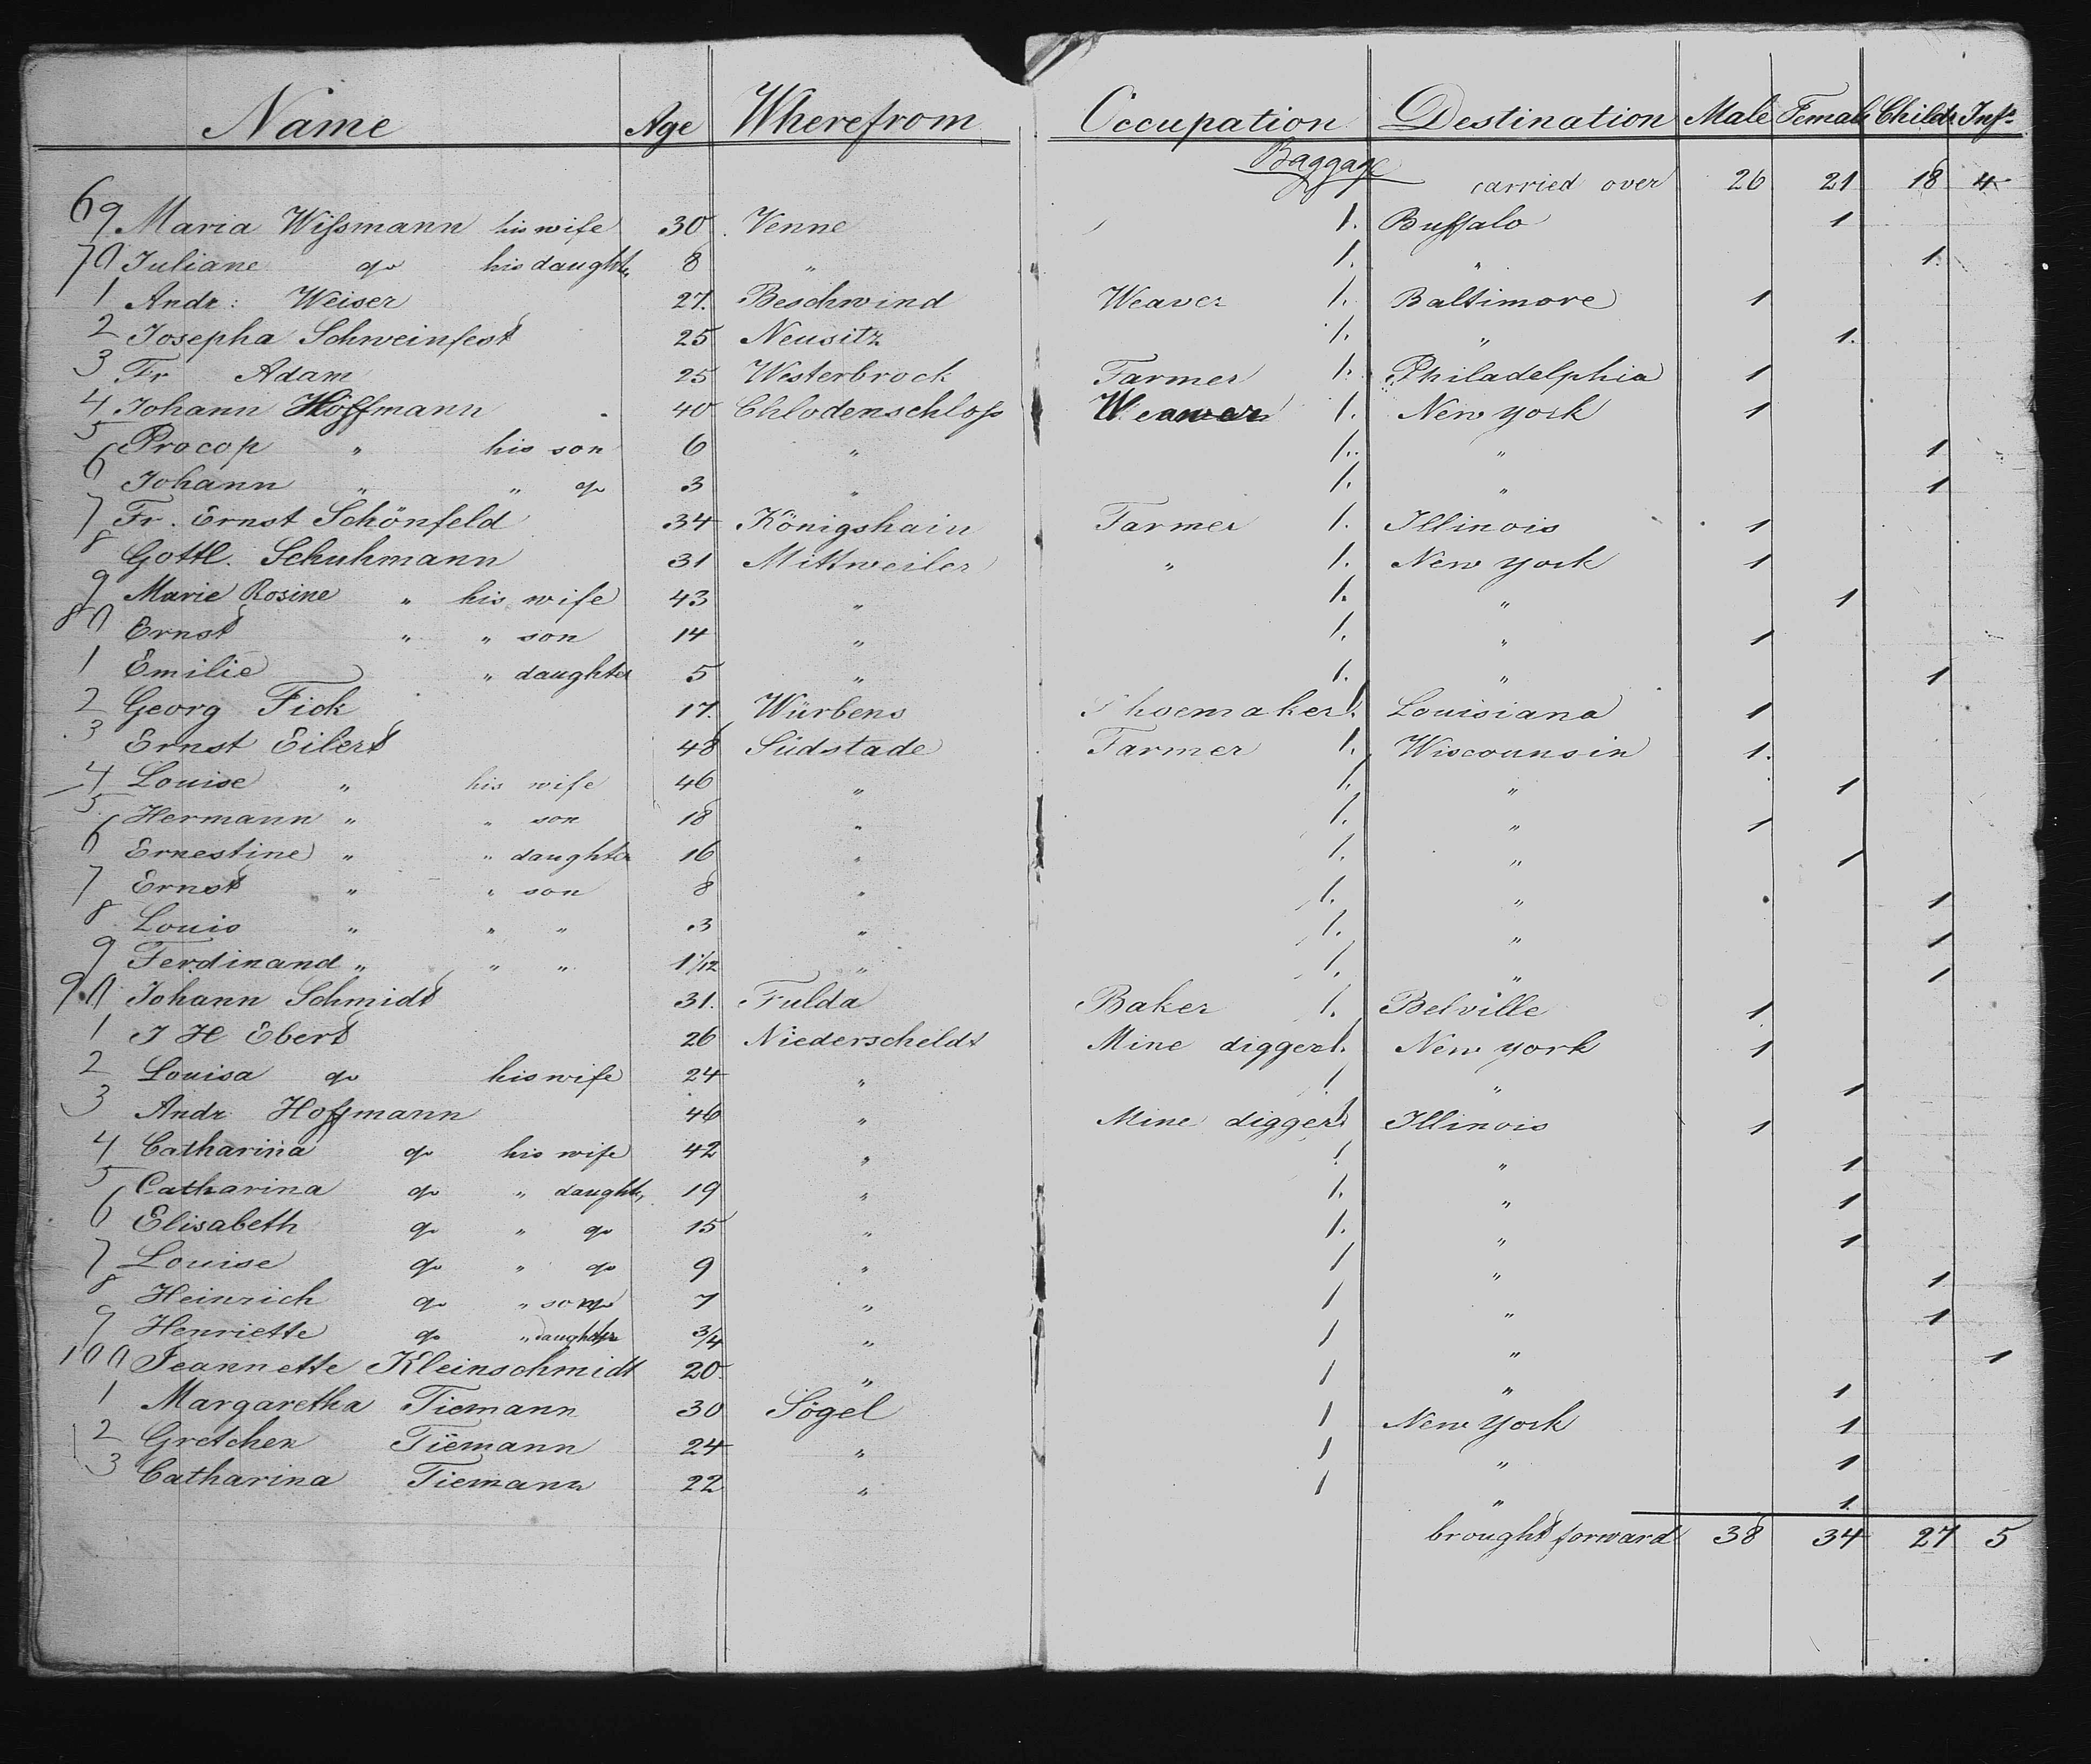 Name Age Wherefrom Occupation Destination Male Female Childr Inft
Baggage carried over 26 21 18 4
69 Maria Wißmann his wife 30 Venne 1. Buffalo 1
70 Juliane do his daught. 8 " 1. " 1.
1 Andr: Weiser 27. Beschwind Weaver 1. Baltimore 1
2 Josepha Schweinfest 25 Neusitz 1. " 1.
3 Fr Adam 25 Westerbrock Farmer 1. Philadelphia 1
4 Johann Höffmann 40 Chlodenschloß Weawer 1. New york 1
5 Procop " his son 6 " 1. " 1
6 Johann " " do 3 " 1. " 1
7 Fr. Ernst Schönfeld 34 Königshain Farmer 1. Illinois 1
8 Gottl. Schuhmann 31 Mittweiler " 1. New york 1
9 Marie Rosine " his wife 43 " 1. " 1
80 Ernst " " son 14 " 1. " 1
1 Emilie " daughter 5 " 1. " 1
2 Georg Fick 17. Würbens Shoemaker 1. Louisiana 1
3 Ernst Eilert 48 Südstade Farmer 1. Wiscounsin 1.
4 Louise " his wife 46 " 1. " 1
5 Hermann " " son 18 " 1. " 1
6 Ernestine " " daughter 16 " 1. " 1
7 Ernst " " son 8 " 1. " 1
8 Louis " " " 3 " 1. " 1
9 Ferdinand " " " 1 1/12 " 1. " 1
90 Johann Schmidt 31. Fulda Baker 1. Belville 1
1 J H Ebert 26 Niederscheldt Mine digger 1. New york 1
2 Louisa do his wife 24 " 1 " 1
3 Andr Hoffmann 46 " Mine digger 1 Illinois 1
4 Catharina do his wife 42 " 1 " 1
5 Catharina do " daught. 19 " 1. " 1
6 Elisabeth do " do 15 " 1. " 1
7 Louise do " do 9 " 1 " 1
8 Heinrich do " son 7 " 1 " 1
9 Henriette do " daughter 3/4 " 1 " 1
100 Jeannette Kleinschmidt 20. " 1 " 1
1 Margaretha Tiemann 30 Sögel 1 New York 1
2 Gretchen Tiemann 24 " 1 " 1
3 Catharina Tiemann 22 " 1 " 1.
brought forward 38 34 27 5